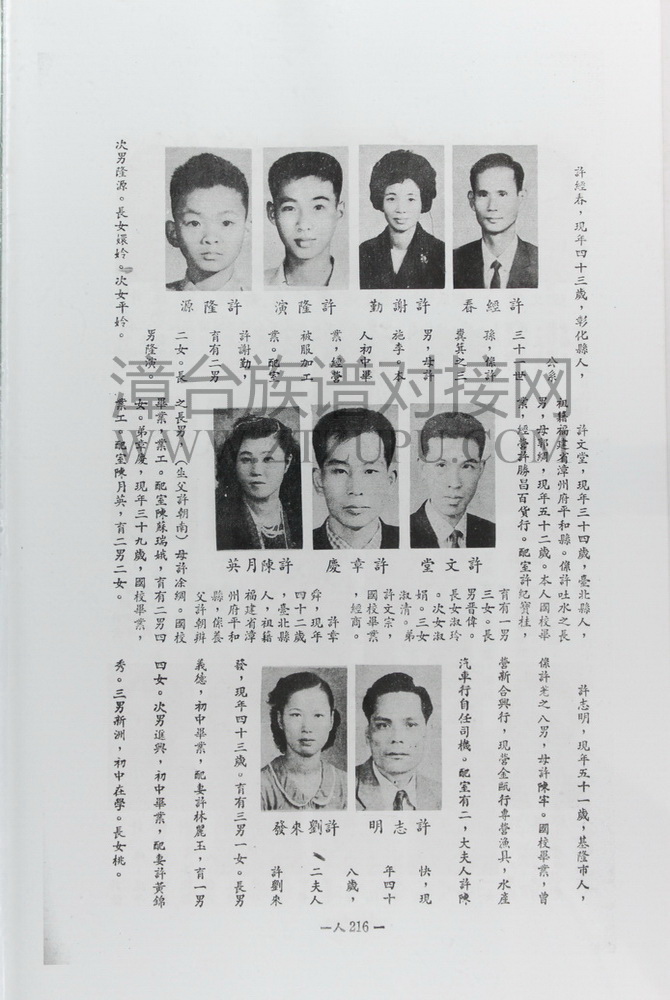 許經春，現年四十三歲，彰化縣人，
公系
三十一世
孫，係許
糞箕之三
男，母許
施季。本
人初中畢
業，經營
被服加工
業。配室
許謝勤，
育有二男
二女。長
男隆演。
次男隆源。長女孃姈。次女平姈。
許經春
許謝勤
許隆演
許隆源
許文堂，現年三十四歲，臺北縣人，
祖籍福建省漳州府平和縣。係許吐水之長
男，母郭綢，現年五十二歲。本人國校畢
業，經營許勝昌百貨行。配室許紀寶桂，
育有一男
三女。長
男晋偉。
長女淑玲
。次女淑
娟。三女
淑清。弟
許文宗，
國校畢業
，經商。
許章
舜，現年
四十二歲
，臺北縣
人，祖籍
福建省漳
州府平和
縣，係養
父許朝辨
之長男，（生父許朝南）母許凃綢。國校
畢業，業工。配室陳蘇瑞娥，育有二男四
女。弟章慶，現年三十九歲，國校畢業，
業工。配室陳月英，育二男二女。
許文堂
許章慶
許陳月英
許志明，現年五十一歲，基隆市人，
係許羌之八男，母許陳牢。國校畢業，曾
營新合興行，現營金瓯行專營漁具，水產
汽車行自任司機。配室有二，大夫人許陳
快，現
年四十
八歲，
二夫人
許劉來
發，現年四十三歲。育有三男一女。長男
義德，初中畢業，配妻許林麗玉，育一男
四女。次男進興，初中畢業，配妻許黃錦
秀。三男新洲，初中在學。長女桃。
許志明
許劉來發
—人216—
漳台族谱对接网
WWW.ZTZUPU.COM